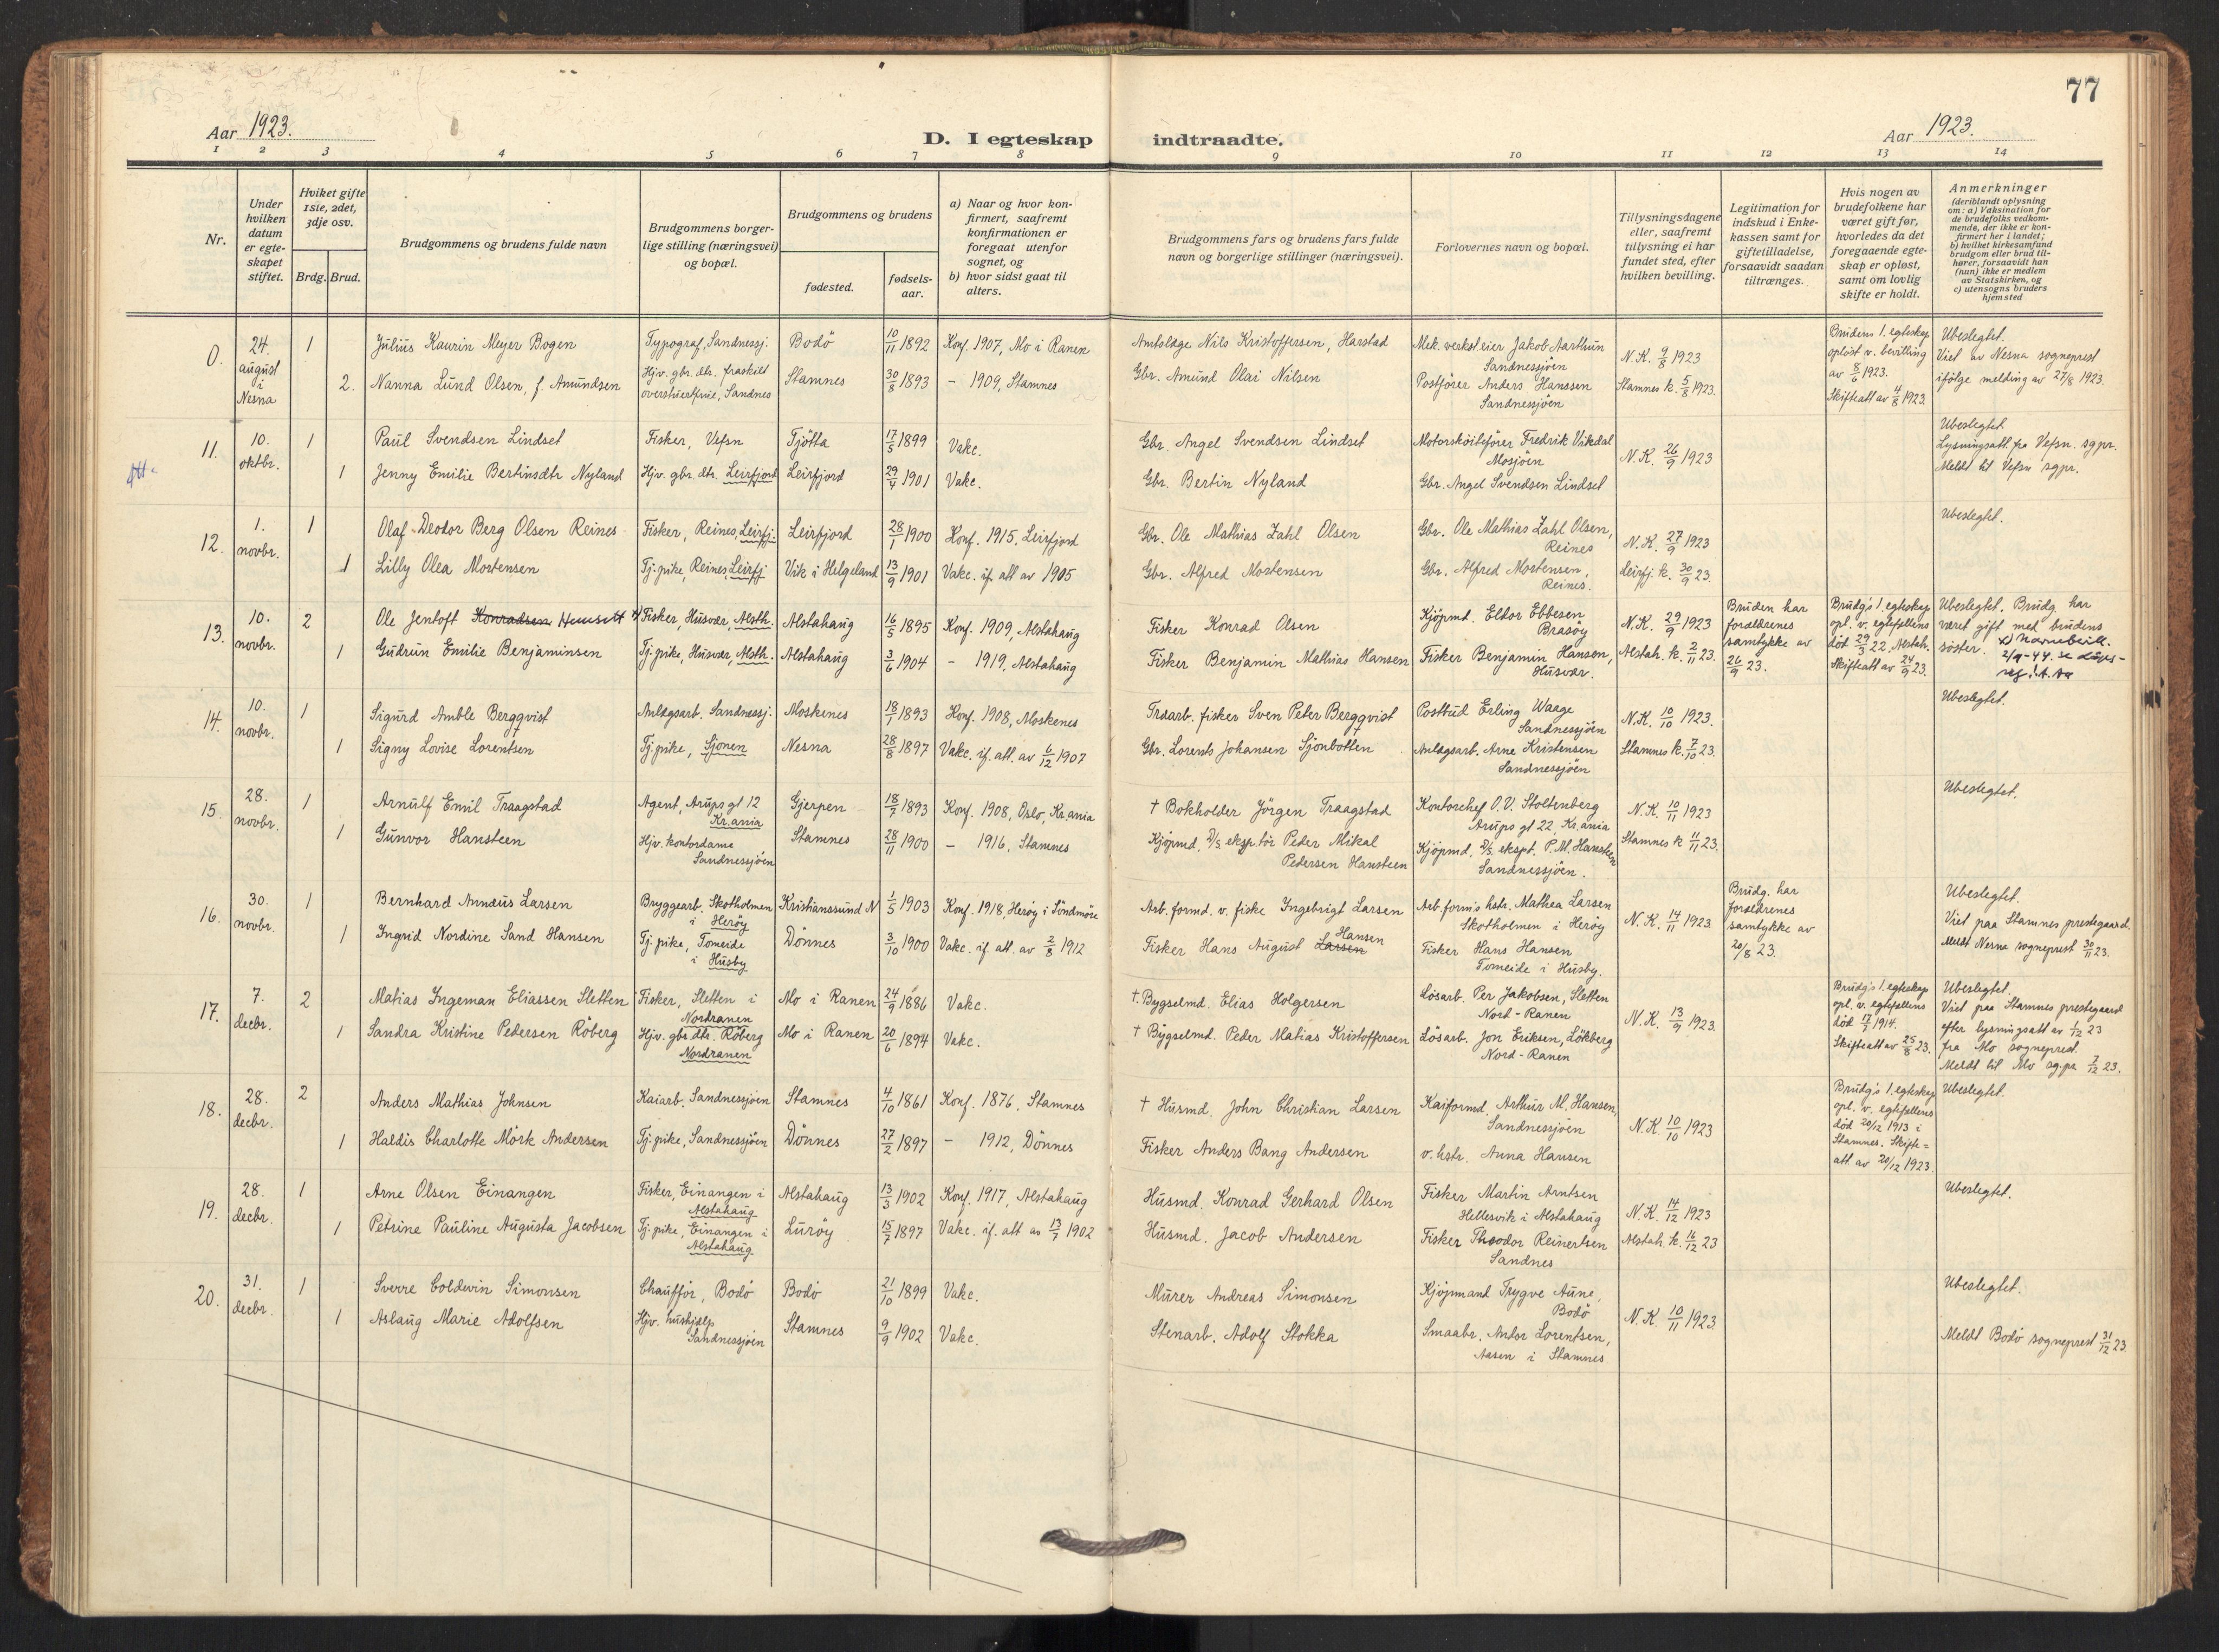 77
Aar 1923.
D. I egteskap indtraadte.
Aar 1923.
1 2 3 4 5 6 7 8 9 10 11 12 13 14
Nr.
Under hvilken datum er egte-skapet stiftet.
Hviket gifte 1ste, 2det, 3dje osv.
Brdg. Brud.
Brudgommens og brudens fulde navn
Brudgommens borger-lige stilling (næringsvei) og bopæl.
Brudgommens og brudens
fødested.
fødsels-aar.
a) Naar og hvor kon-firmert, saafremt konfirmationen er foregaat utenfor sognet, og
b) hvor sidst gaat til alters.
Brudgommens fars og brudens fars fulde navn og borgerlige stillinger (næringsvei).
Forlovernes navn og bopæl.
Tillysningsdagene eller, saafremt tillysning ei har fundet sted, efter hvilken bevilling.
Legitimation for indskud i Enke-kassen samt for giftetilladelse, forsaavidt saadan tiltrænges.
Hvis nogen av brudefolkene har været gift før, hvorledes da det foregaaende egte-skap er opløst, samt om lovlig skifte er holdt.
Anmerkninger (deriblandt oplysning om: a) Vaksination for de brudefolks vedkom-mende, der ikke er kon-firmert her i landet; b) hvilket kirkesamfund brudgom eller brud til-hører, forsaavidt han (hun) ikke er medlem av Statskirken, og c) utensogns bruders hjemsted
0. 24. august i Nesna 1 Julius Kaurin Meyer Bogen Typograf, Sandnessj. Bodö 10/11 1892 Konf. 1907, Mo i Ranen Nils Kristoffersen, Harstad Mek. verksteier Jakob Aarthun Sandnessjöen N.K. 9/8 1923
2. Nanna Lund Olsen, f. Amundsen Hjv. gbr. dtr. fraskilt Sandnes Stamnes 30/8 1893 – 1909, Stamnes Gbr. Amund Olai Nilsen Postförer Anders Hanssen Sandnessjöen Stamnes k. 5/8 1923.
Brudens 1. egteskap oplöst v. bevilling av 8/6 1923. Skifteatt av 4/8 1923.
Ubeslegtet. Viet av Nesna sogneprest ifölge melding av 27/8 1923.
11. 10. oktbr. 1 Paul Svendsen Lindset Fisker, Vefsn Tjötta 17/5 1899 Vakc. Gbr. Angel Svendsen Lindset Motorsköiteförer Fredrik Vikdal Mosjöen N.K. 26/9 1923
1 Jenny Emilie Bertinsdtr Nyland Hjv. gbr. dtr. Leirfjord Leirfjord 29/4 1901 Vakc. Gbr. Bertin Nyland Gbr. Angel Svendsen Lindset
Ubeslegtet. Lysningsatt. fra Vefsn. sgpr. Meldt til Vefsn sgpr.
12. 1. novbr. 1 Olaf Deodor Berg Olsen Reines Fisker, Reines, Leirfj. Leirfjord 28/1 1900 Konf. 1915, Leirfjord Gbr. Ole Mathias Zahl Olsen Gbr. Ole Mathias Zahl Olsen, Reines N.K. 27/9 1923
1 Lilly Olea Mortensen Tj. pike, Reines, Leirfj Vik i Helgeland 13/9 1901 Vakc. if. att av 1905 Gbr. Alfred Mortensen Gbr. Alfred Mortensen, Reines. Leirfj. k. 30/9 23.
Ubeslegtet.
13. 10. novbr. 2 Ole Jentoft Konradsen x) Fisker, Husvær, Alsth. Alstahaug 16/5 1895 Konf. 1909, Alstahaug Fisker Konrad Olsen Kjöpmt. Eldor Ebbesen Brasöy N.K. 29/9 1923
1 Gudrun Emilie Benjaminsen Tj. pike, Husvær, Alsth. Alstahaug 3/6 1904 – 1919, Alstahaug Fisker Benjamin Mathias Hansen Fisker Benjamin Hansen, Husvær. Alstah. k. 2/11 23.
Bruden har forældrenes samtykke av 26/9 23.
Brudg's 1. egteskap opl. v. egtefellens död 29/3 22, Alstah. Skifteatt av 24/9 23.
Ubeslegtet. Brudg. har været gift med brudens söster. x) Navnebevill. 2/9-44.
14. 10. novbr. 1 Sigurd Amble Bergqvist Anlægsarb. Sandnessj. Moskenes 18/1 1893 Konf. 1908, Moskenes Træarb. fisker Sven Peter Bergqvist Postbud Erling Waage Sandnessjöen N.K. 10/10 1923.
1 Signy Lovise Lorentsen Tj. pike, Sjonen Nesna 28/8 1897 Vakc. if. att. av 6/12 1907 Gbr. Lorents Johansen Sjonbotten Anlægsarb. Arne Kristensen Sandnessjöen Stamnes k. 7/10 23.
Ubeslegtet.
15. 28. novbr. 1 Arnulf Emil Traagstad Agent, Arups gt 12 Kr.ania Gjerpen 18/7 1893 Konf. 1908, Oslo, Kr.ania † Bokholder Jörgen Traagstad Kontorchef O.V. Stoltenberg Arups gt 22, Kr.ania N.K. 10/11 1923
1 Gunvor Hansteen Hjv. kontordame Sandnessjöen Stamnes 28/11 1900 – 1916, Stamnes Kjöpmd, D/S eksp.tör Peder Mikal Pedersen Hansteen Kjöpmd, D/S ekspt. P.M. Hansteen Sandnessjöen. Stamnes k 11/11 23.
Ubeslegtet.
16. 30. novbr. 1 Bernhard Annæus Larsen Bryggearb. Skotholmen i Heröy Kristianssund N 1/5 1903 Konf. 1918, Heröy i Söndmöre Arb. formd. v. fiske Ingebrigt Larsen Arb. form's hstr. Mathea Larsen Skotholmen i Heröy N.K. 14/11 1923
1 Ingrid Nordine Sand Hansen Tj. pike, Tomeide i Husby Dönnes 3/10 1900 Vakc. if. att. av 2/8 1912 Fisker Hans August Larsen Hansen Fisker Hans Hansen Tomeide i Husby.
Brudg. har forældrenes samtykke av 20/8 23.
Ubeslegtet. Viet paa Stamnes prestegaard. Meldt Nesna sogneprest 30/11 23.
17. 7. decbr. 2 Matias Ingeman Eliassen Sletten Fisker, Sletten i Nordranen Mo i Ranen 24/9 1886 Vakc. †. Bygselmd. Elias Holgersen Lösarb. Per Jakobsen, Sletten Nord-Ranen N.K. 13/9 1923.
1 Sandra Kristine Pedersen Röberg Hjv. gbr. dtr. Röberg Nordranen Mo i Ranen 20/6 1894 Vakc. † Bygselmd. Peder Matias Kristoffersen Lösarb. Jon Eriksen, Lökberg Nord-Ranen
Brudg's 1. egteskap opl. v. egtefellens död 17/5 1914. Skifteatt av 25/8 23.
Ubeslegtet. Viet paa Stamnes prestegaard efter lysningsatt av 1/12 23 fra Mo sogneprest. Meldt til Mo sg.pr 7/12 23.
18. 28. decbr. 2 Anders Mathias Johnsen Kaiarb. Sandnessjöen Stamnes 4/10 1861 Konf. 1876, Stamnes † Husmd. John Christian Larsen Kaiformd. Arthur M. Hansen, Sandnessjöen N.K. 10/10 1923
1 Haldis Charlotte Mörk Andersen Tj. pike, Sandnessjöen Dönnes 27/2 1897 – 1912, Dönnes Fisker Anders Bang Andersen v. hstr. Anna Hansen
Brudg's 1. egteskap opl. v. egtefellens död 20/12 1913 i Stamnes. Skifte= att. av 20/12 1923.
Ubeslegtet.
19. 28. decbr. 1 Arne Olsen Einangen Fisker, Einangen i Alstahaug Alstahaug 13/3 1902 Konf. 1917, Alstahaug Husmd. Konrad Gerhard Olsen Fisker Martin Arntsen Hellesvik i Alstahaug N.K. 14/12 1923
1 Petrine Pauline Augusta Jacobsen Tj. pike, Einangen i Alstahaug Luröy 15/7 1897 Vakc. if. att av 13/7 1902 Husmd. Jacob Andersen Fisker Theodor Reinertsen Sandnes Alstah. k. 16/12 23
Ubeslegtet.
20. 31. decbr. 1 Sverre Coldevin Simonsen Chaufför, Bodö Bodö 21/10 1899 Vakc. Murer Andreas Simonsen Kjöpmand Trygve Aune, Bodö N.K. 10/11 1923.
1 Aslaug Marie Adolfsen Hjv. hushjælp Sandnessjöen Stamnes 9/9 1902 Vakc. Stenarb. Adolf Stokka Smaabr. Antor Lorentsen, Aasen i Stamnes
Ubeslegtet. Meldt Bodö sogneprest 31/12 23.